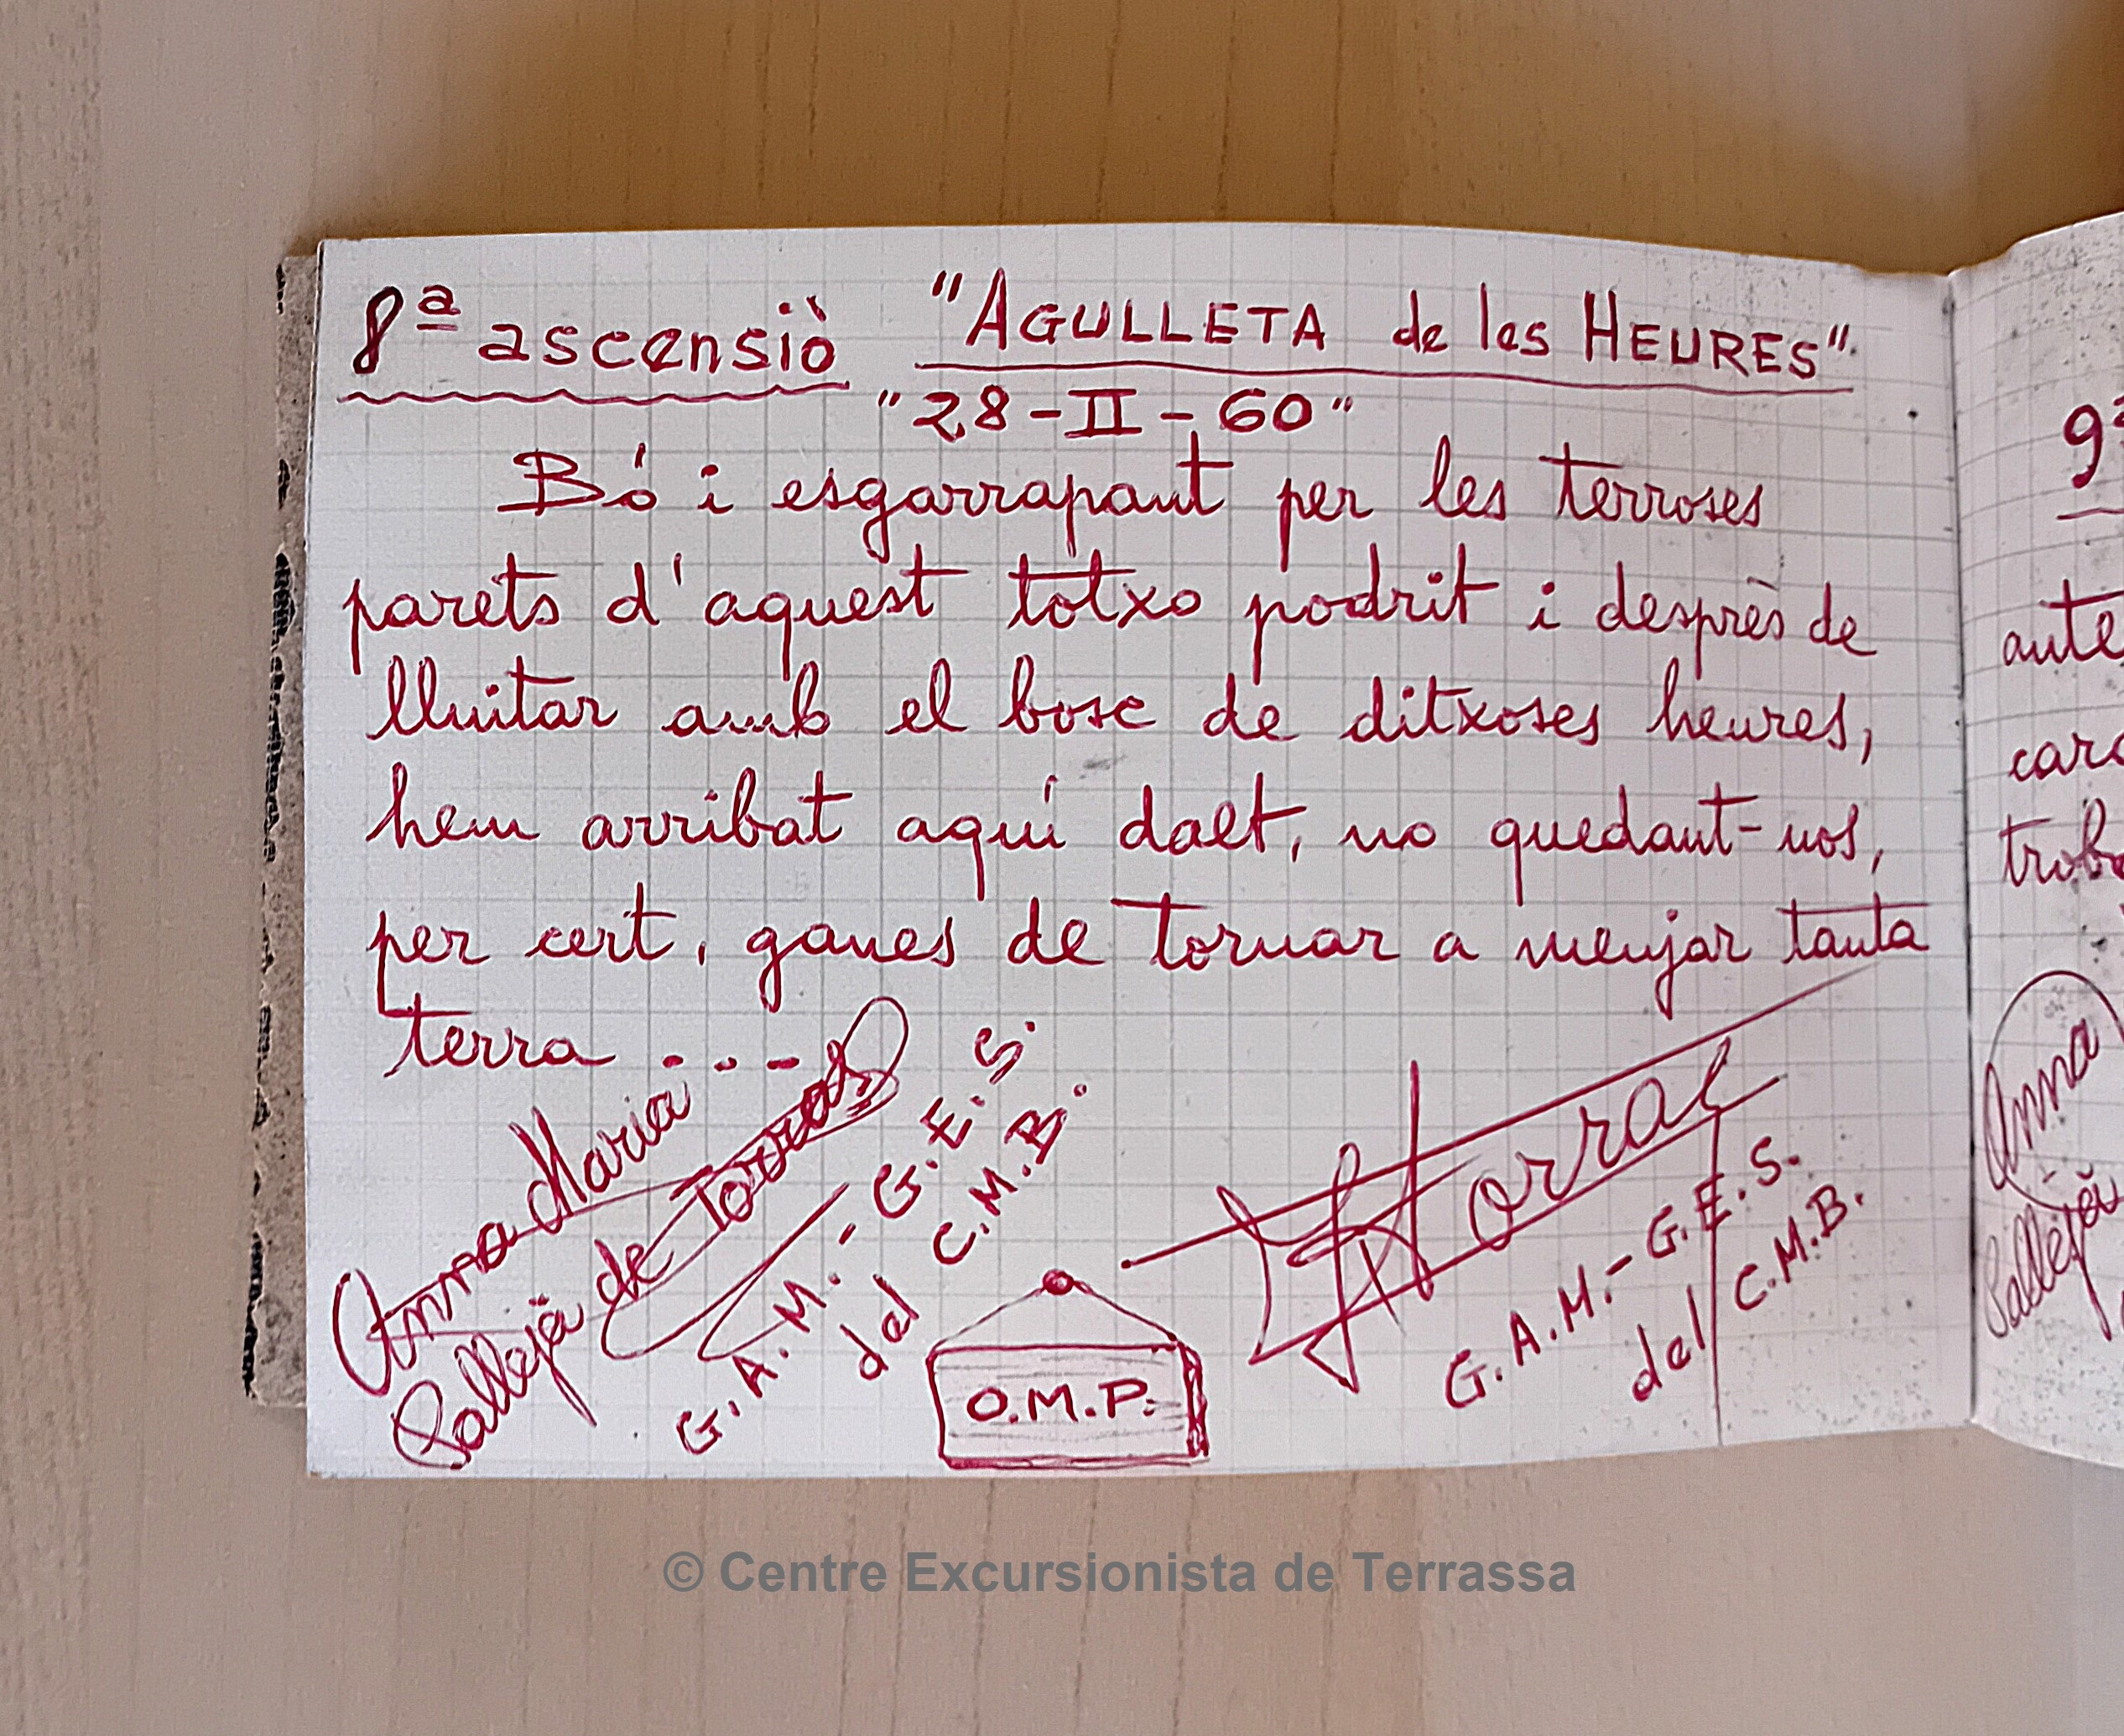 8ª ascensiò "AGULLETA de les HEURES"
"28-II-60"
Bó i esgarrapant per les terroses
parets d'aquest totxo podrit i desprès de
lluitar amb el bosc de ditxoses heures,
hem arribat aquí dalt, no quedant-nos,
per cert, ganes de tornar a menjar tanta
terra....
Anna Maria
Sallejà de Torras
G.A.M.-G.E.S.
del C.M.B.
O.M.P.
Torras
G.A.M.-G.E.S.
del C.M.B.
9ª
Anna
Sallejà
© Centre Excursionista de Terrassa